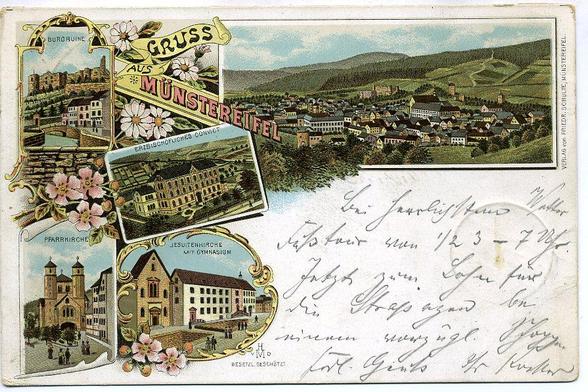 BURGRUINE
GRUSS
AUS
MÜNSTEREIFEL
ERZBISCHÖFLICHES CONVICT
PFARRKIRCHE
JESUITENKIRCHE
MIT GYMNASIUM
GESETZL. GESCHÜTZT
VERLAG VON FRIEDR. SCHULTE, MÜNSTEREIFEL.
Bei herrlichstem Wetter
Fußtour von 1/2 3 – 7 Uhr.
Jetzt zum Lohn für
die Strapazen bei
einem vorzügl.
Frdl. Gruß Ihr